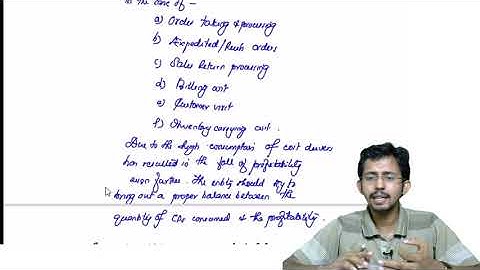 in the case of –
a) Order taking & processing
b) Expedited/Rush orders
c) Sales Return processing
d) Billing cost
e) Customer visit
f) Inventory carrying cost.
Due to the high consumption of cost drivers
has resulted in the fall of profitability
even further. The entity should try to
bring out a proper balance between the
quantity of CDs consumed & the profitability.